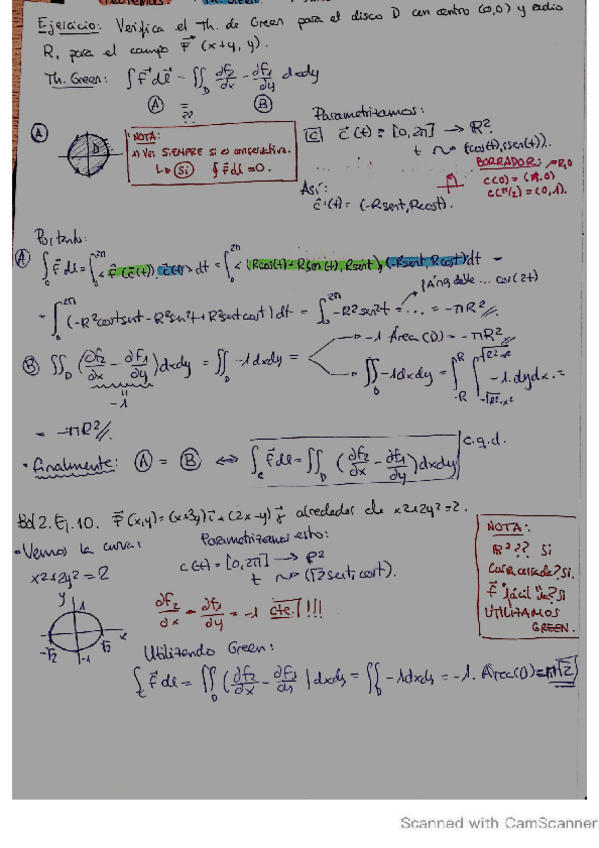 Ejercicio: Verifica el Th. de Green para el disco D con centro (0,0) y radio
R, para el campo F (x+y, y).
Th. Green: ∫F dl = ∬_D ∂f2/∂x - ∂f1/∂y dxdy
A = ?? B
A
D
NOTA:
Ver SIEMPRE si es conservativa.
↳ Si ∮F dl = 0.
Parametrizamos:
C c(t) = [0,2π] → R²
t ↝ (rcos(t), rsen(t)).
BORRADOR:
c(0) = (R,0)
c(π/2) = (0,1).
Así:
c'(t) = (-Rsent, Rcost).
Por tanto:
A ∫_c F dl = ∫_0^2π <F(c(t)), c'(t)> dt = ∫_0^2π <(Rcos(t)+Rsen(t), Rsent), (-Rsent, Rcost)> dt =
= ∫_0^2π (-R²costsent - R²sen²t + R²sentcost) dt = ∫_0^2π -R²sen²t = ... = -πR²//.
Áng doble ... cos(2t)
B ∬_D (∂f2/∂x - ∂f1/∂y) dxdy = ∬_D -1dxdy =
-1
-1 Área(D) = -πR²//
∬_D -1dxdy = ∫_-R^R ∫_-√R²-x²^√R²-x² -1. dydx. =
= -πR²//.
· Finalmente: A = B ⇔ ∫_c F dl = ∬_D (∂f2/∂x - ∂f1/∂y) dxdy c.q.d.
Bol 2. Ej. 10. F(x,y) = (x+3y) i + (2x-y) j alrededor de x²+2y² = 2.
· Vemos la curva:
x²+2y² = 2
y
1
x
-√2
-1
√2
Parametrizamos esto:
c(t) = [0,2π] → R²
t ↝ (√2sent, cost).
∂f2/∂x - ∂f1/∂y = -1 cte.!!!
NOTA:
R²?? Si
Curva cerrada? Si.
F "fácil"? Si
UTILIZAMOS
GREEN.
Utilizando Green:
∫_c F dl = ∬_D (∂f2/∂x - ∂f1/∂y) dxdy = ∬_D -1dxdy = -1. Área(D) = -π√2
Scanned with CamScanner